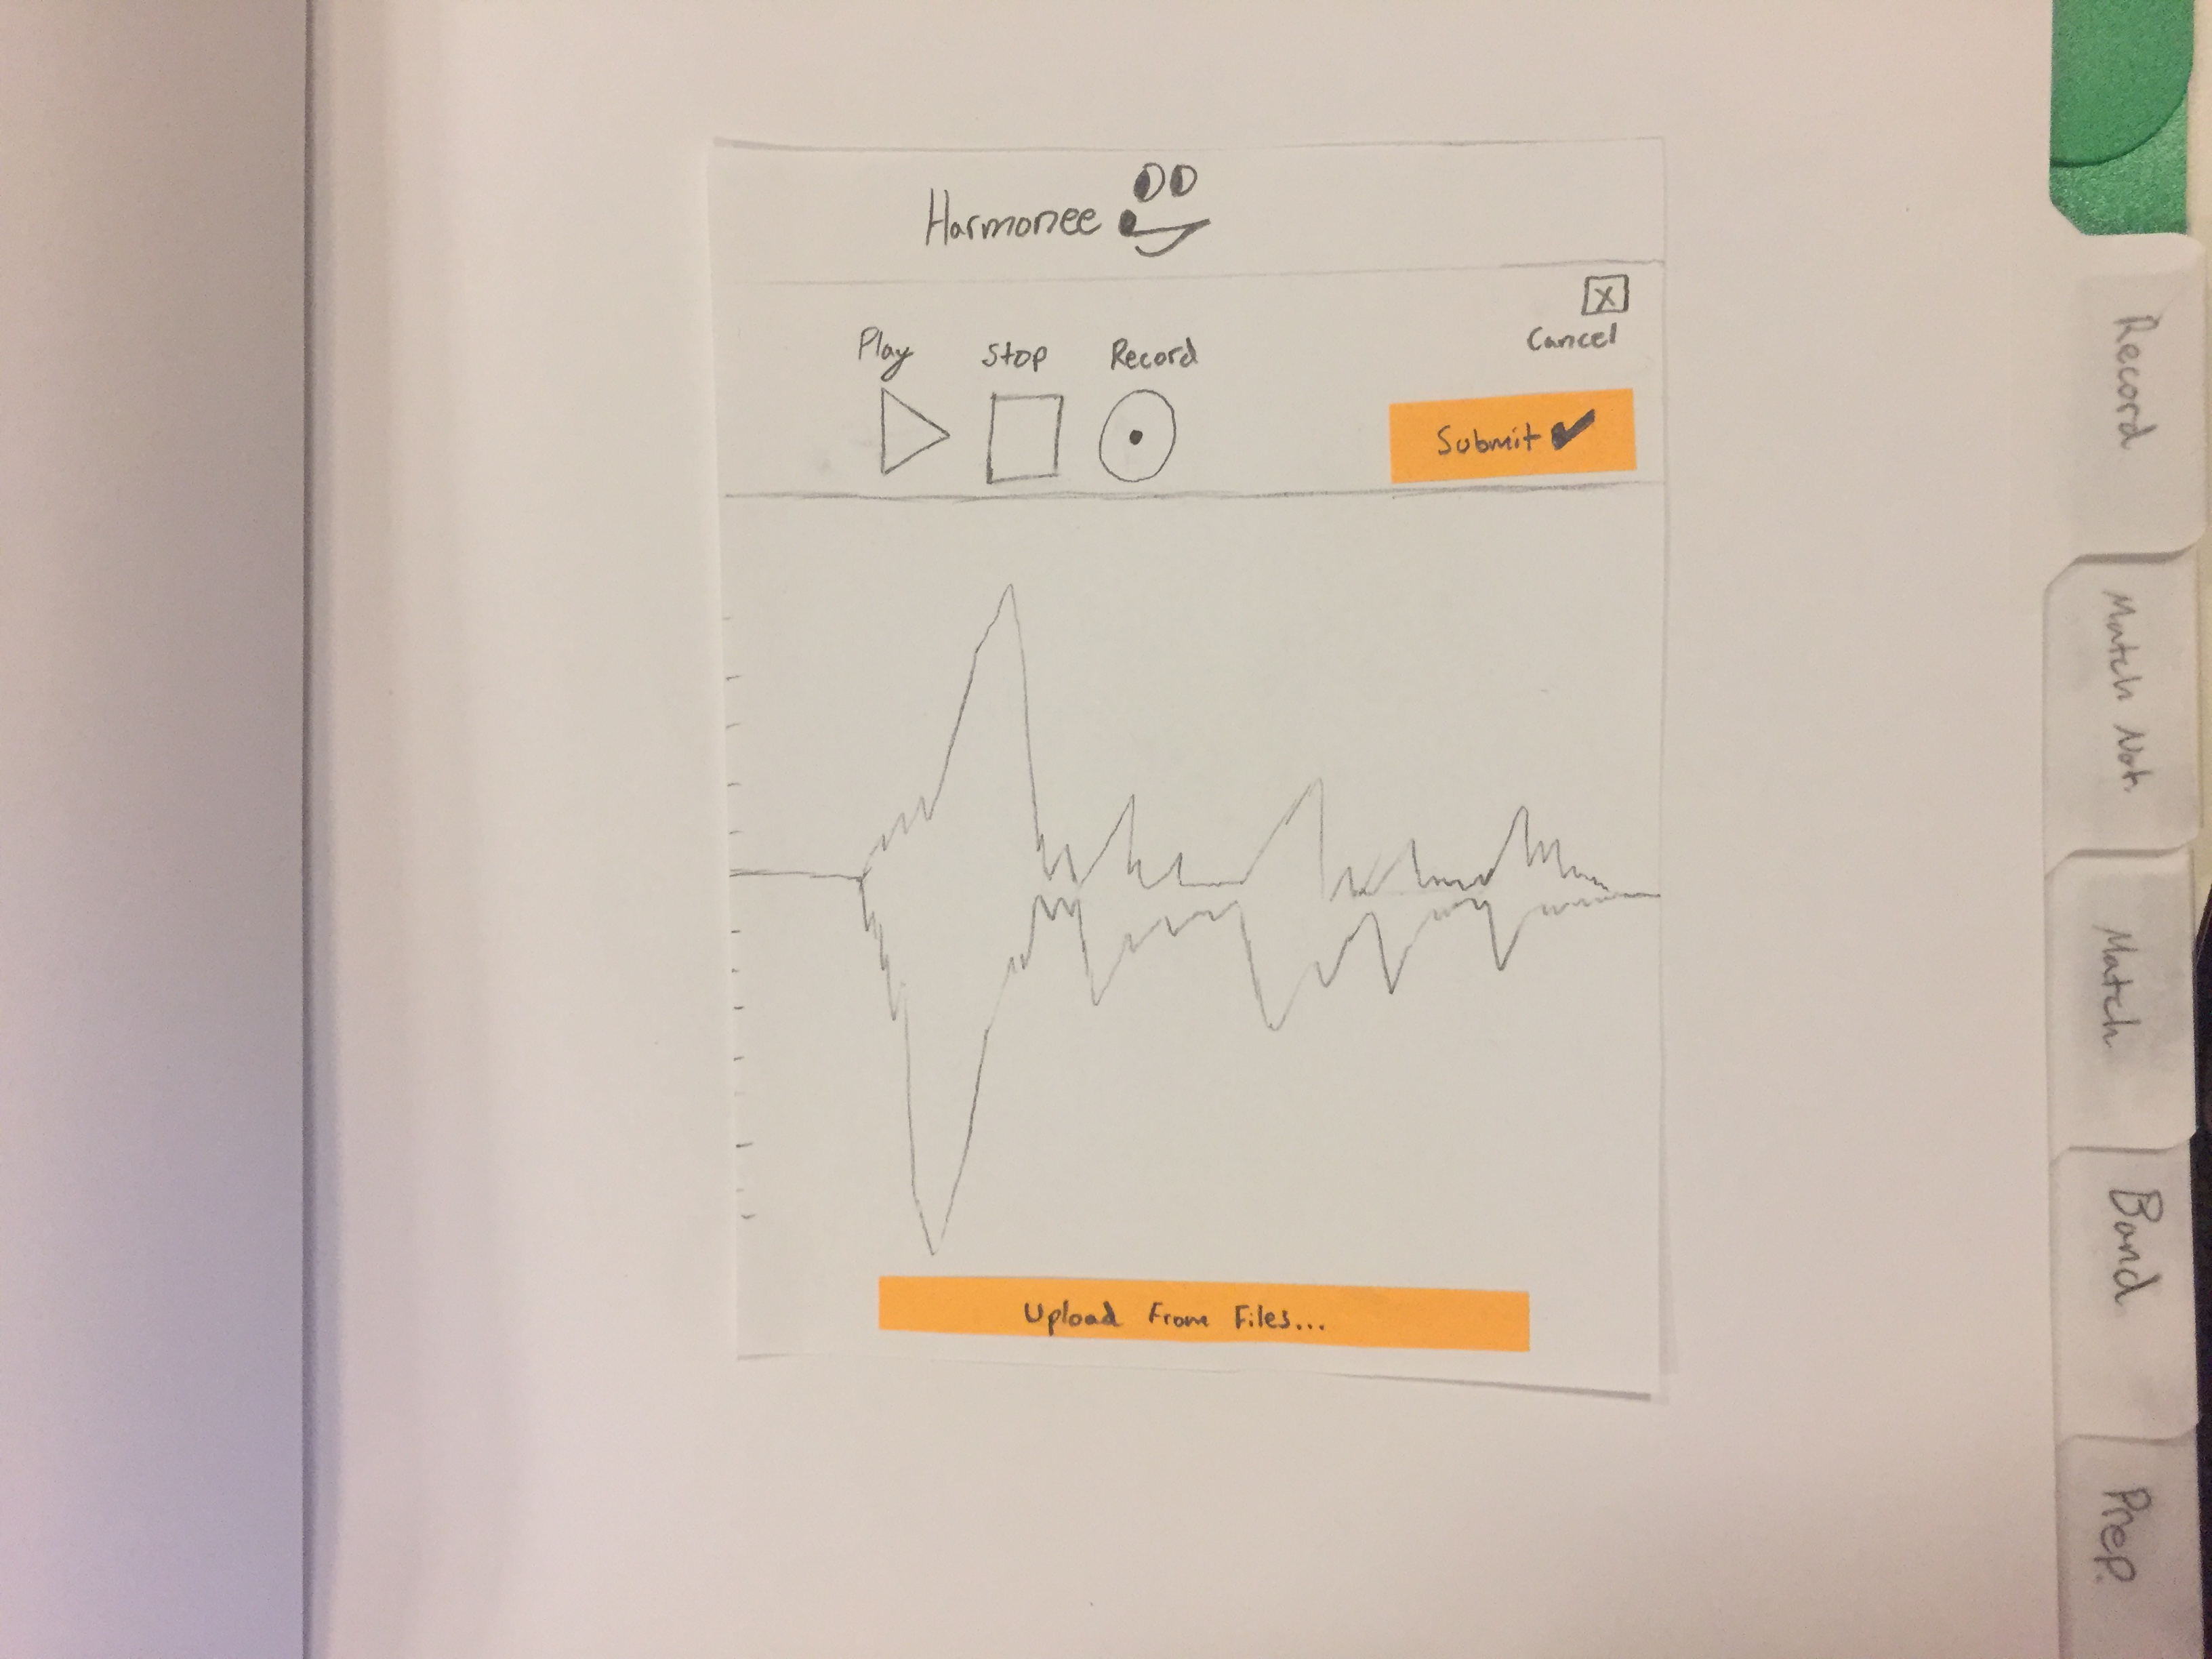 Harmonee
Cancel
Play Stop Record
Submit
Upload from Files...
Record
Match Not.
Match
Band
Prep.